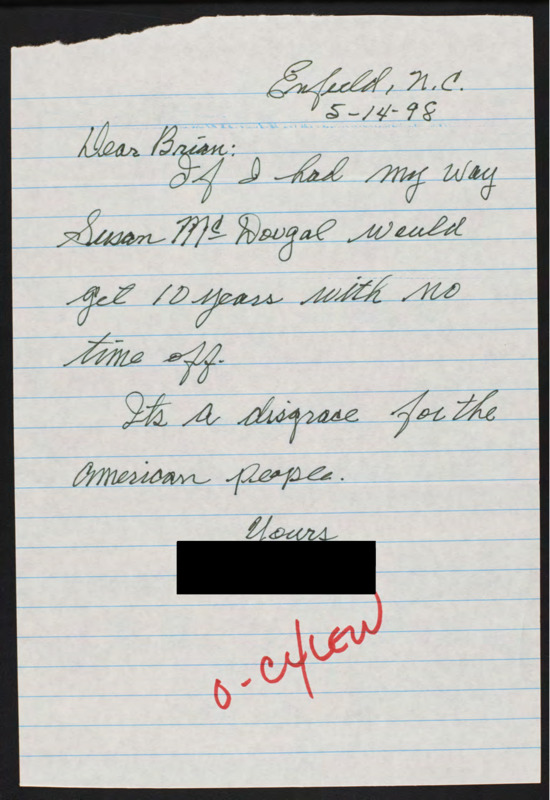 Enfield, N.C.
5-14-98
Dear Brian:
If I had my way
Susan Mc Dougal would
get 10 years with no
time off.
Its a disgrace for the
American people.
Yours